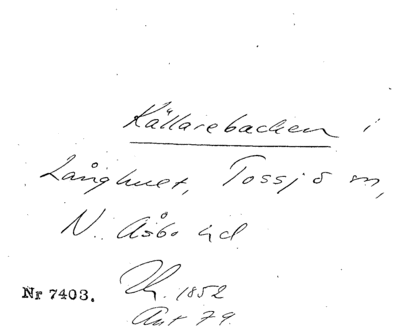 Källarebacken i
Långhult, Tossjö sn,
N. Åsbo hd
Lh. 1852
Ant 79.
Nr 7403.